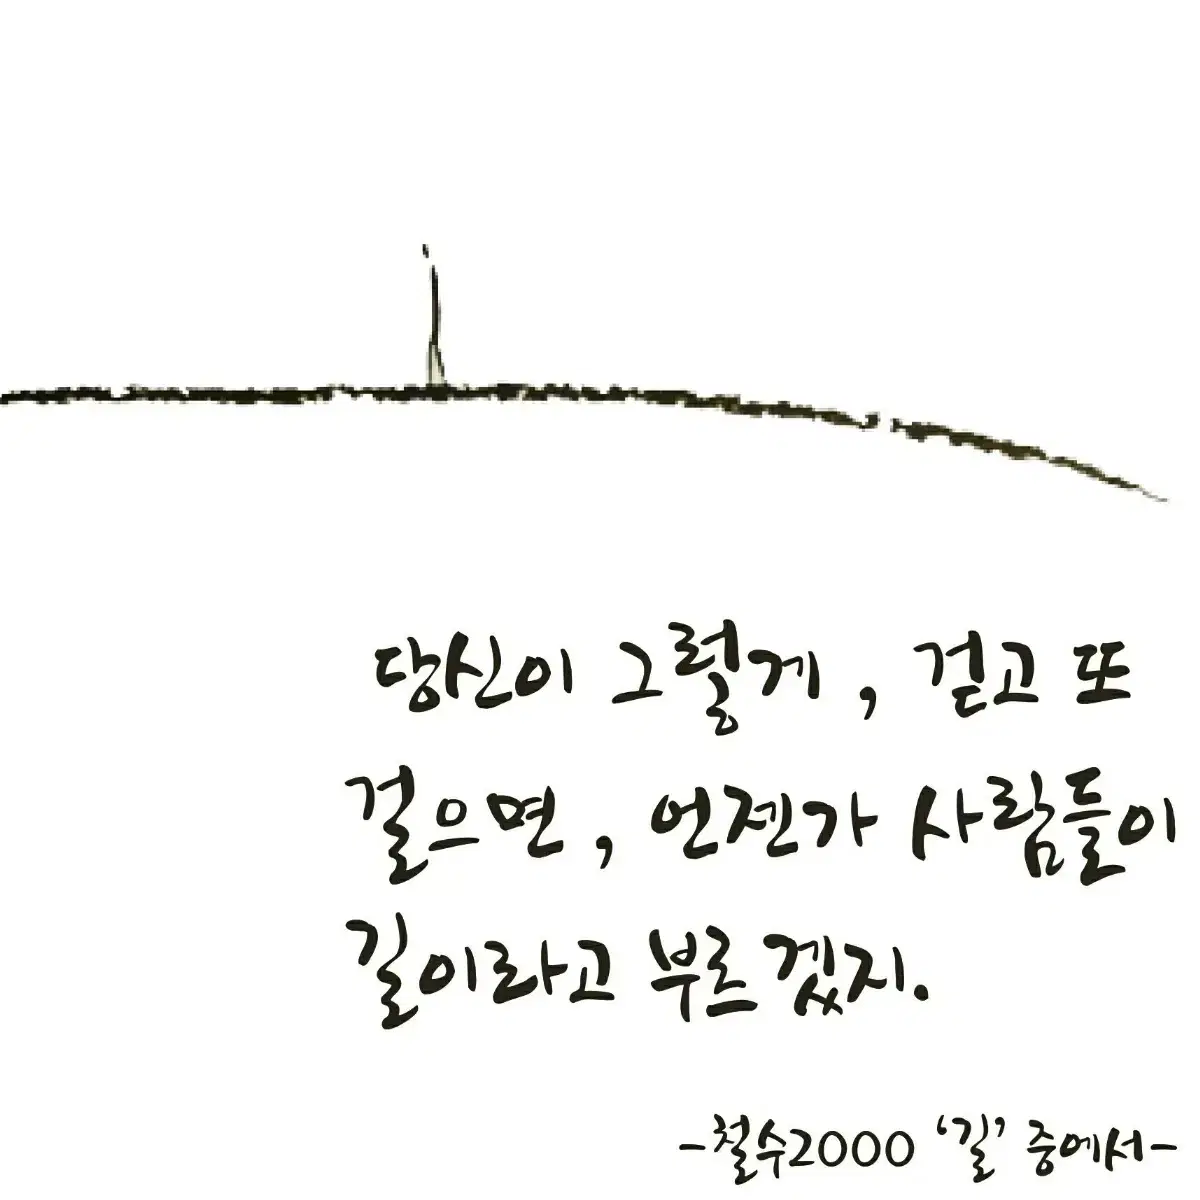 당신이 그렇게, 걷고 또
걸으면, 언젠가 사람들이
길이라고 부르겠지.
-철수2000 '길' 중에서-